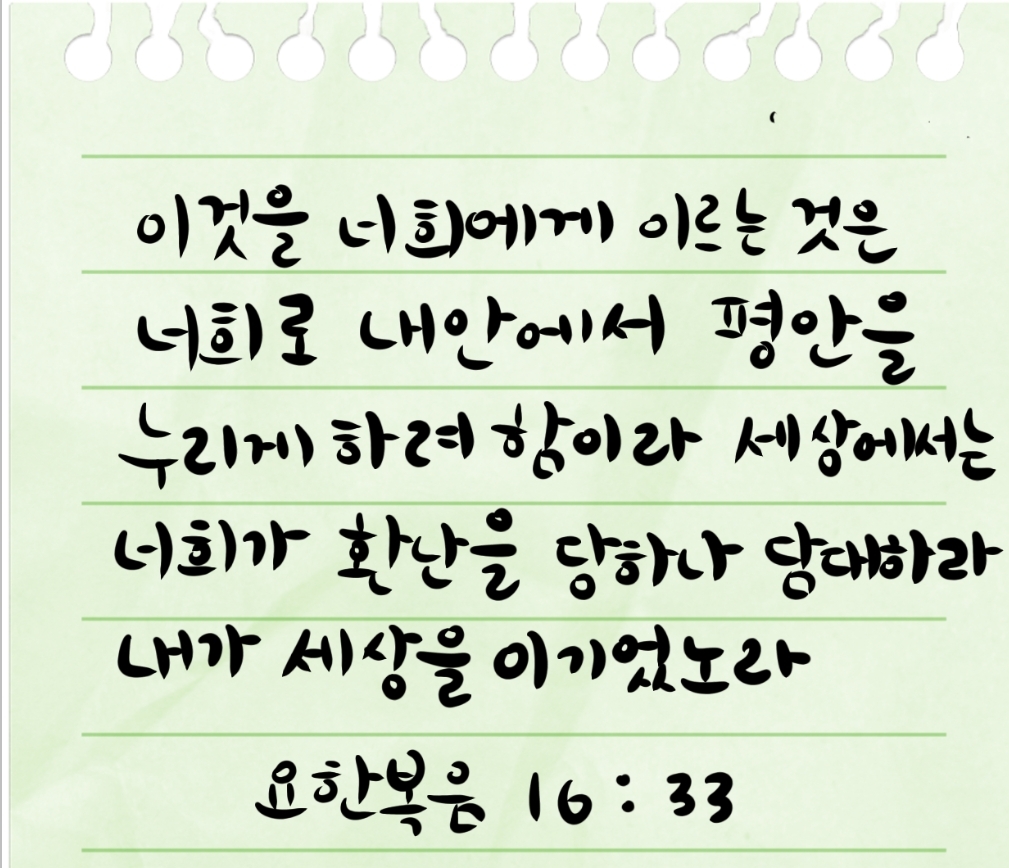 이것을 너희에게 이르는 것은
너희로 내안에서 평안을
누리게 하려 함이라 세상에서는
너희가 환난을 당하나 담대하라
내가 세상을 이기었노라
요한복음 16:33